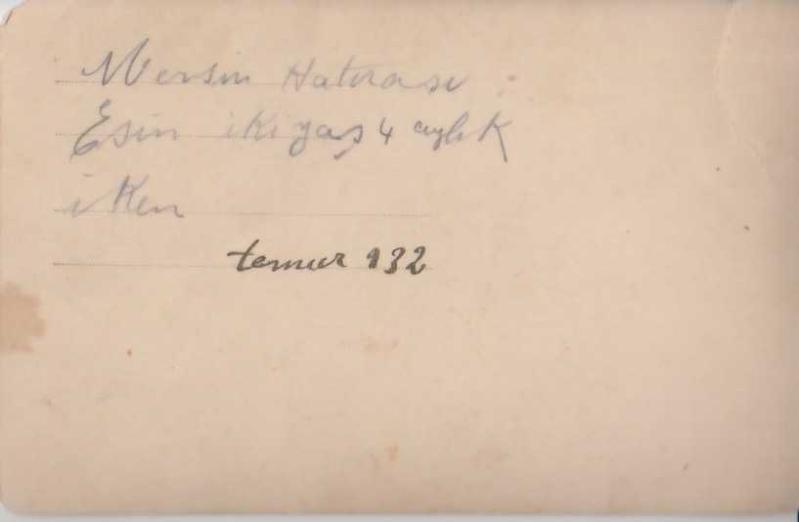 Mersin Hatırası
Esin iki yaş 4 aylık
iken
temuz 932